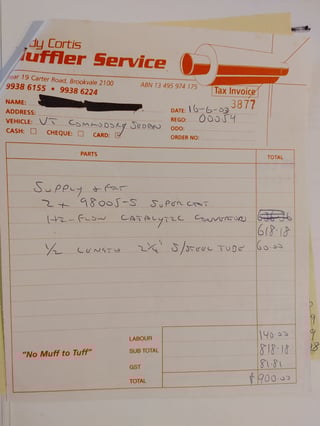 dy Cortis
uffler Service
ear 19 Carter Road, Brookvale 2100
9938 6155 • 9938 6224
ABN 13 495 974 175
Tax Invoice
3877
NAME:
ADDRESS:
DATE: 16-6-03
VEHICLE: VT COMMODORE SEDAN
REGO:
CASH: CHEQUE: CARD:
ODO:
ORDER NO:
PARTS TOTAL
SUPPLY & FIT
2 x 98005-S SUPERCAT
HI-FLOW CATALYTIC CONVERTORS
618.18
1/2 LENGTH 2 1/4" S/STEEL TUBE 60.00
LABOUR 140.00
"No Muff to Tuff"
SUB TOTAL 818.18
GST 81.81
TOTAL $900.00